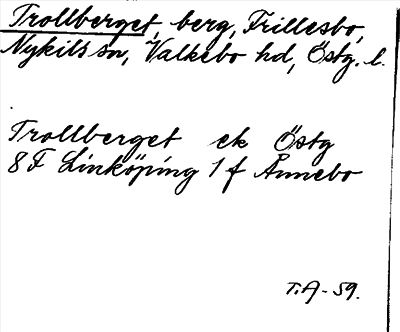 Trollberget, berg, Frillesbo,
Nykils sn, Valkebo hd, Östg. l.
Trollberget ek Östg
8F Linköping 1f Ånnebo
T.A-59.